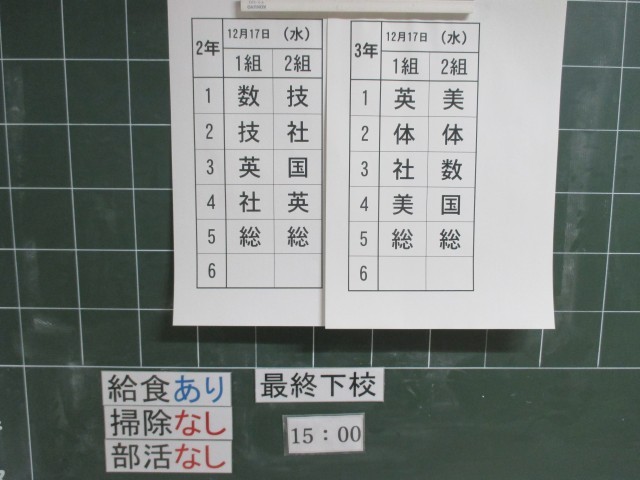 2年 12月17日 (水)
1組 2組
1 数 技
2 技 社
3 英 国
4 社 英
5 総 総
6
3年 12月17日 (水)
1組 2組
1 英 美
2 体 体
3 社 数
4 美 国
5 総 総
6
給食あり
掃除なし
部活なし
最終下校
15:00